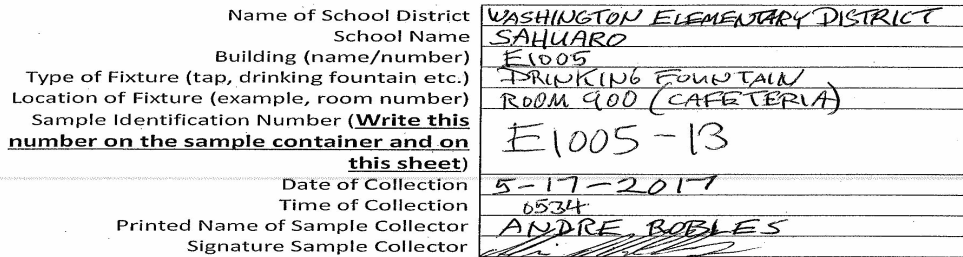 Name of School District WASHINGTON ELEMENTARY DISTRICT
School Name SAHUARO
Building (name/number) E1005
Type of Fixture (tap, drinking fountain etc.) DRINKING FOUNTAIN
Location of Fixture (example, room number) ROOM 900 (CAFETERIA)
Sample Identification Number (Write this
number on the sample container and on
this sheet) E1005-13
Date of Collection 5-17-2017
Time of Collection 0534
Printed Name of Sample Collector ANDRE ROBLES
Signature Sample Collector